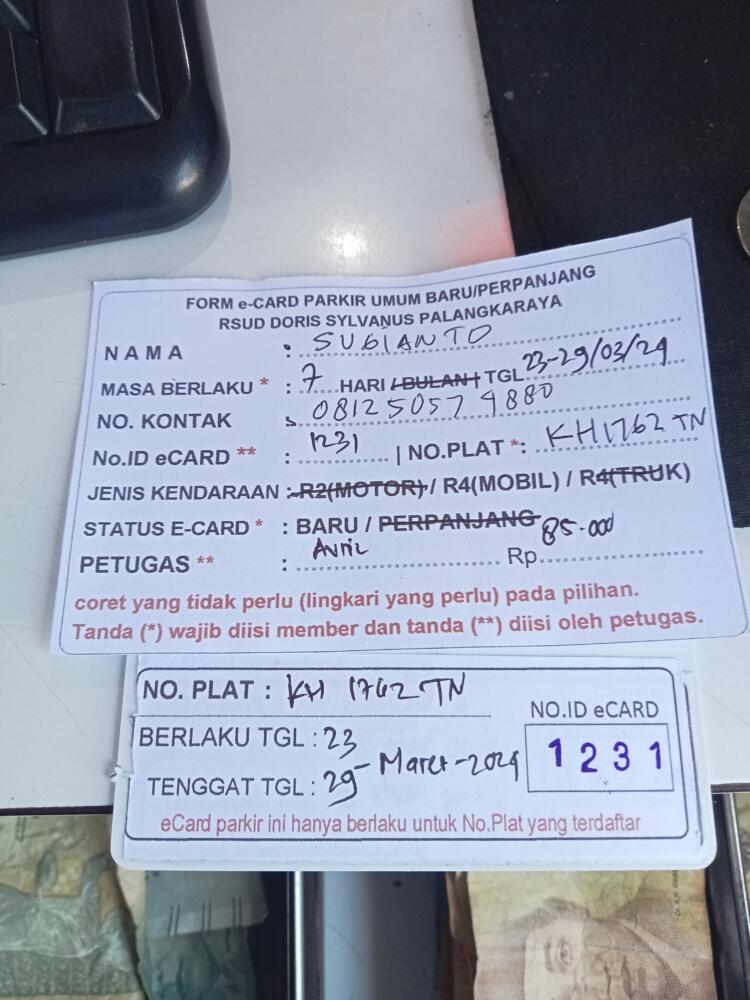 FORM e-CARD PARKIR UMUM BARU/PERPANJANG
RSUD DORIS SYLVANUS PALANGKARAYA
NAMA : SUGIANTO
MASA BERLAKU * : 7 HARI / BULAN | TGL 23-29/03/24
NO. KONTAK : 081250579880
No.ID eCARD ** : 1231 | NO.PLAT *: KH1762 TN
JENIS KENDARAAN : R2(MOTOR) / R4(MOBIL) / R4(TRUK)
STATUS E-CARD * : BARU / PERPANJANG
PETUGAS ** : Avril Rp 85.000
coret yang tidak perlu (lingkari yang perlu) pada pilihan.
Tanda (*) wajib diisi member dan tanda (**) diisi oleh petugas.
NO. PLAT : KH 1762 TN
NO.ID eCARD
BERLAKU TGL : 23
1231
TENGGAT TGL : 29 - Maret - 2024
eCard parkir ini hanya berlaku untuk No.Plat yang terdaftar